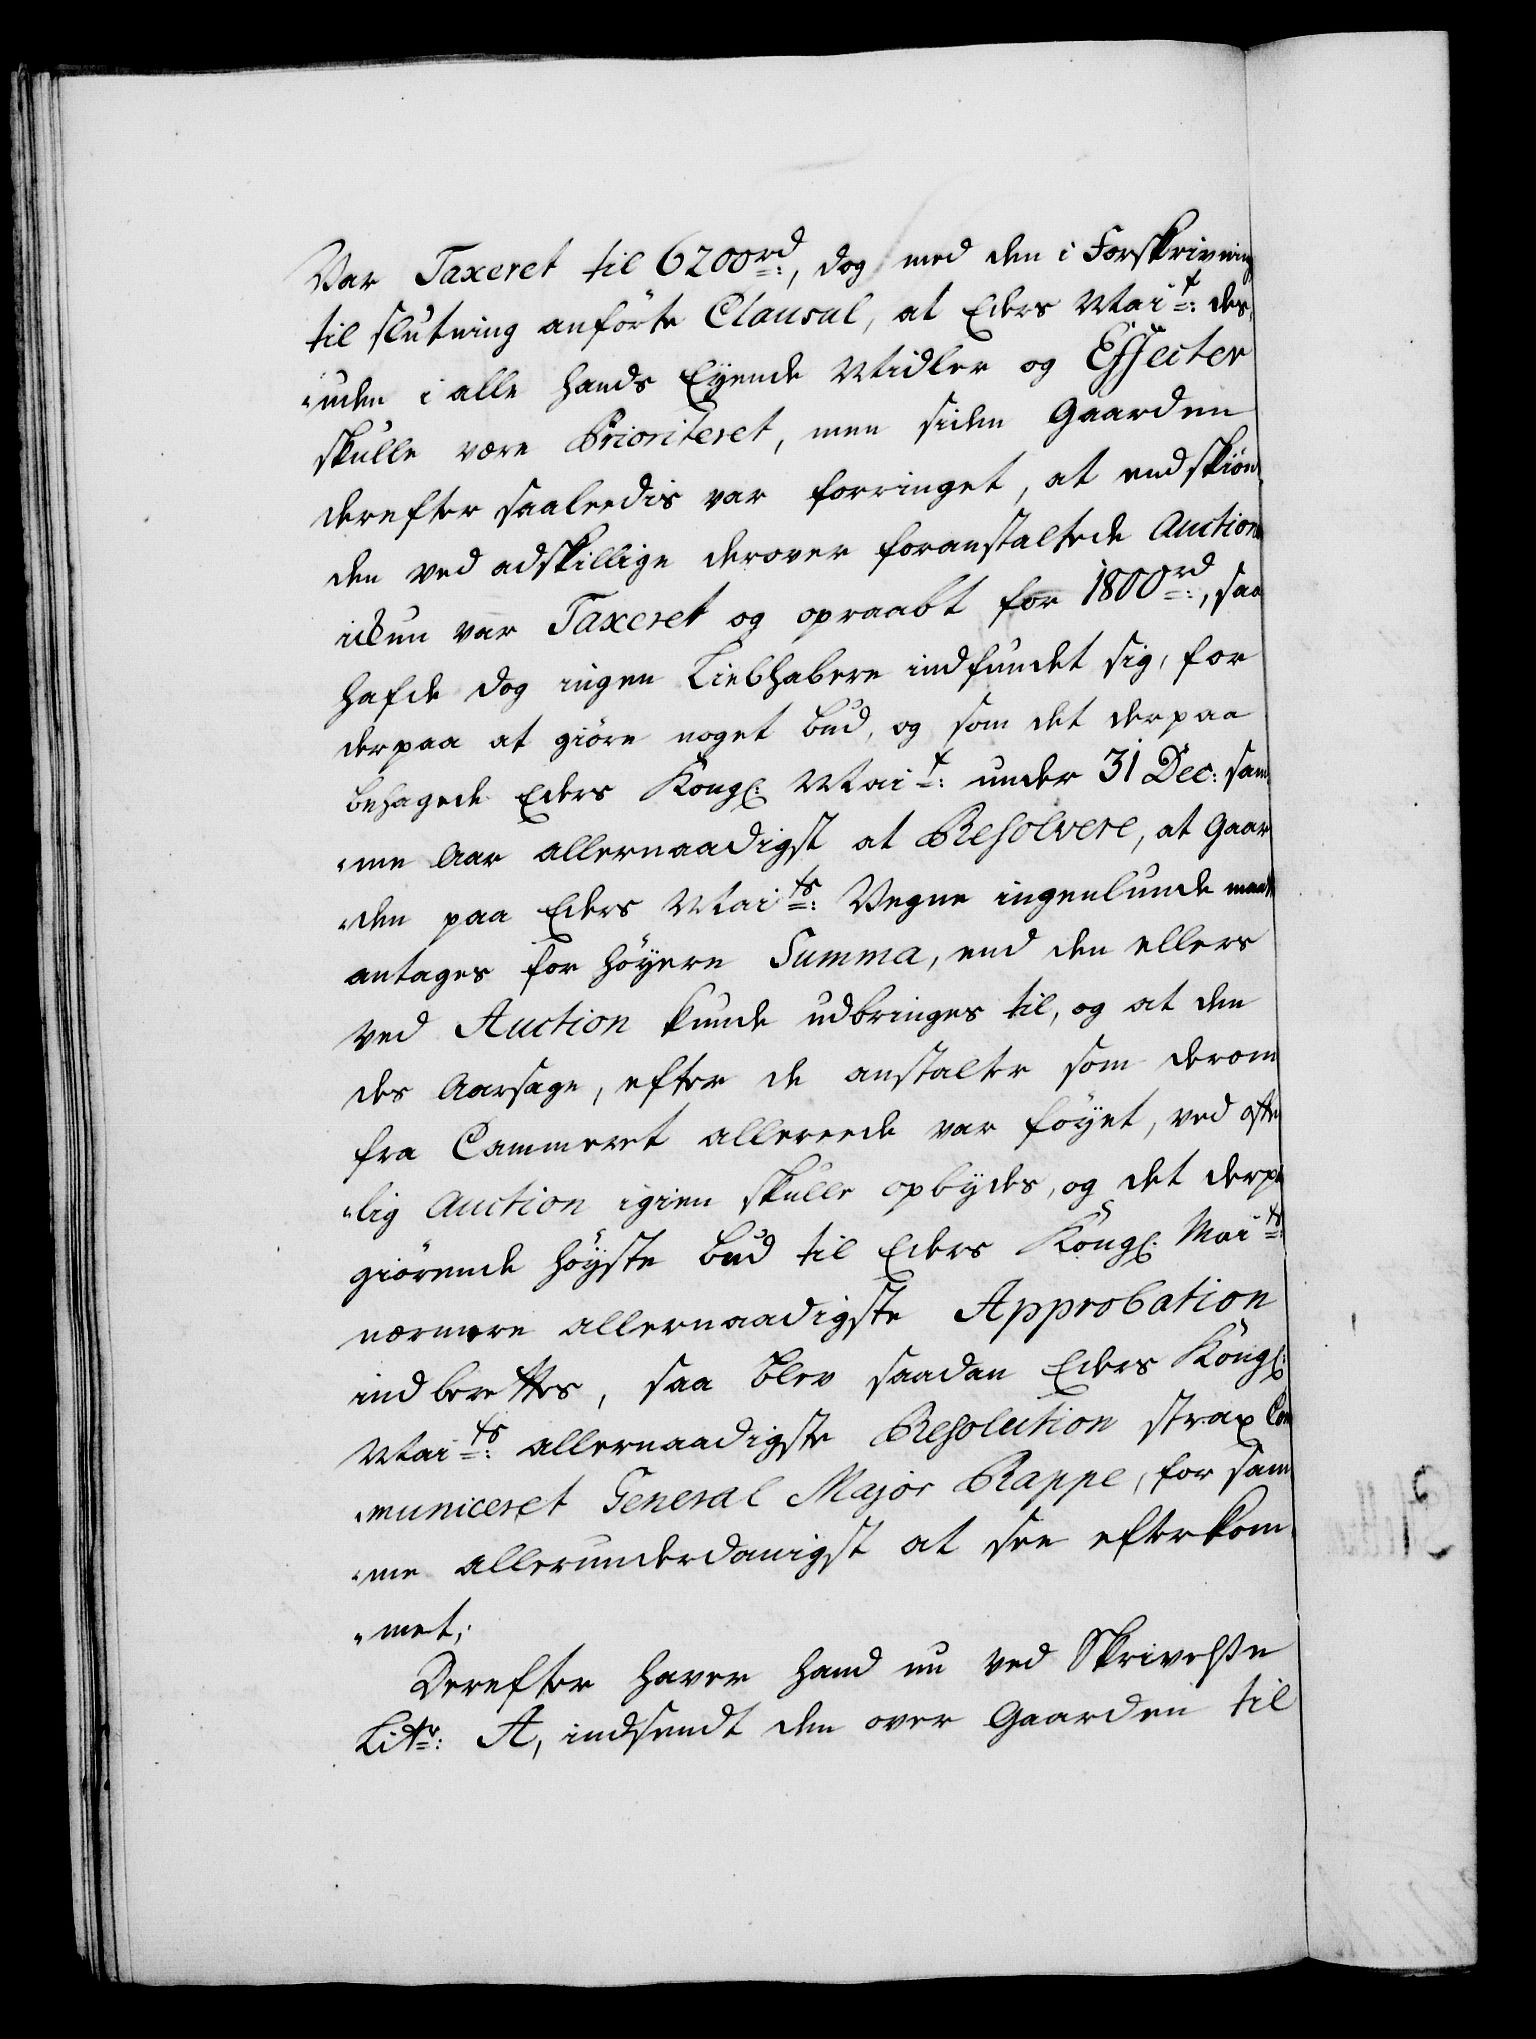 Var Taxeret til 6200 rd:, dog med den i Forskrivning
til slutning anförte Clausul, at Eders Mai t: des,
"uden i alle hands Eyende Midler og Effecter
skulle være Prioriteret, men siden Gaarden
derefter saaleedis var forringet, at endskiön
den ved adskillige derover foranstaltede Auction
ickun var Taxeret og opraabt for 1800 rd:, saa
hafde dog ingen Liebhabere indfundet sig, for
derpaa at giöre noget bud, og som det derpaa
behagede Eders Kongl: Mai t: under 31 Dec: sam
"me Aar allernaadigst at Resolvere, at Gaar
"den paa Eders Mai ts: Vegne ingenlunde maatte
antages for höyere Summa, end den ellers
ved Auction kunde udbringes til, og at den
des Aarsage, efter de anstalter som derom
fra Cammeret allereede var föyet, ved offte
"lig Auction igien skulle opbydes, og det derpaa
giörende höyste bud til Eders Kongl: Mai ts:
nærmere allernaadigste Approbation
indberettes, saa blev saadan Eders Kongl:
Mai ts: allernaadigste Resolution strax Com
"municeret General Major Rappe, for sam
"me allerunderdanigst at see efterkom,
"met;
Derefter haver hand nu ved Skrivelsse
Littr: A, indsendt den over Gaarden til